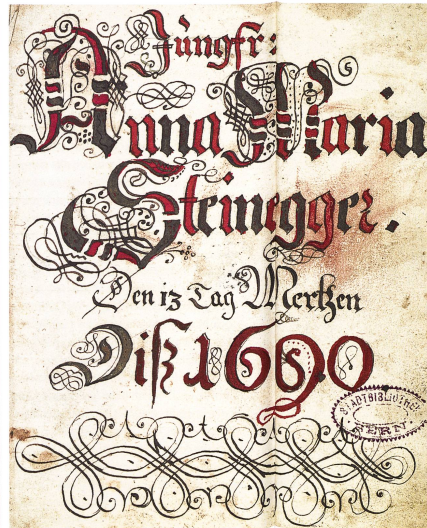 Jungfr:
Anna Maria
Steinegger.
Den 13 Tag Mertzen
Diß 1690
STADTBIBLIOTHEK
BERN